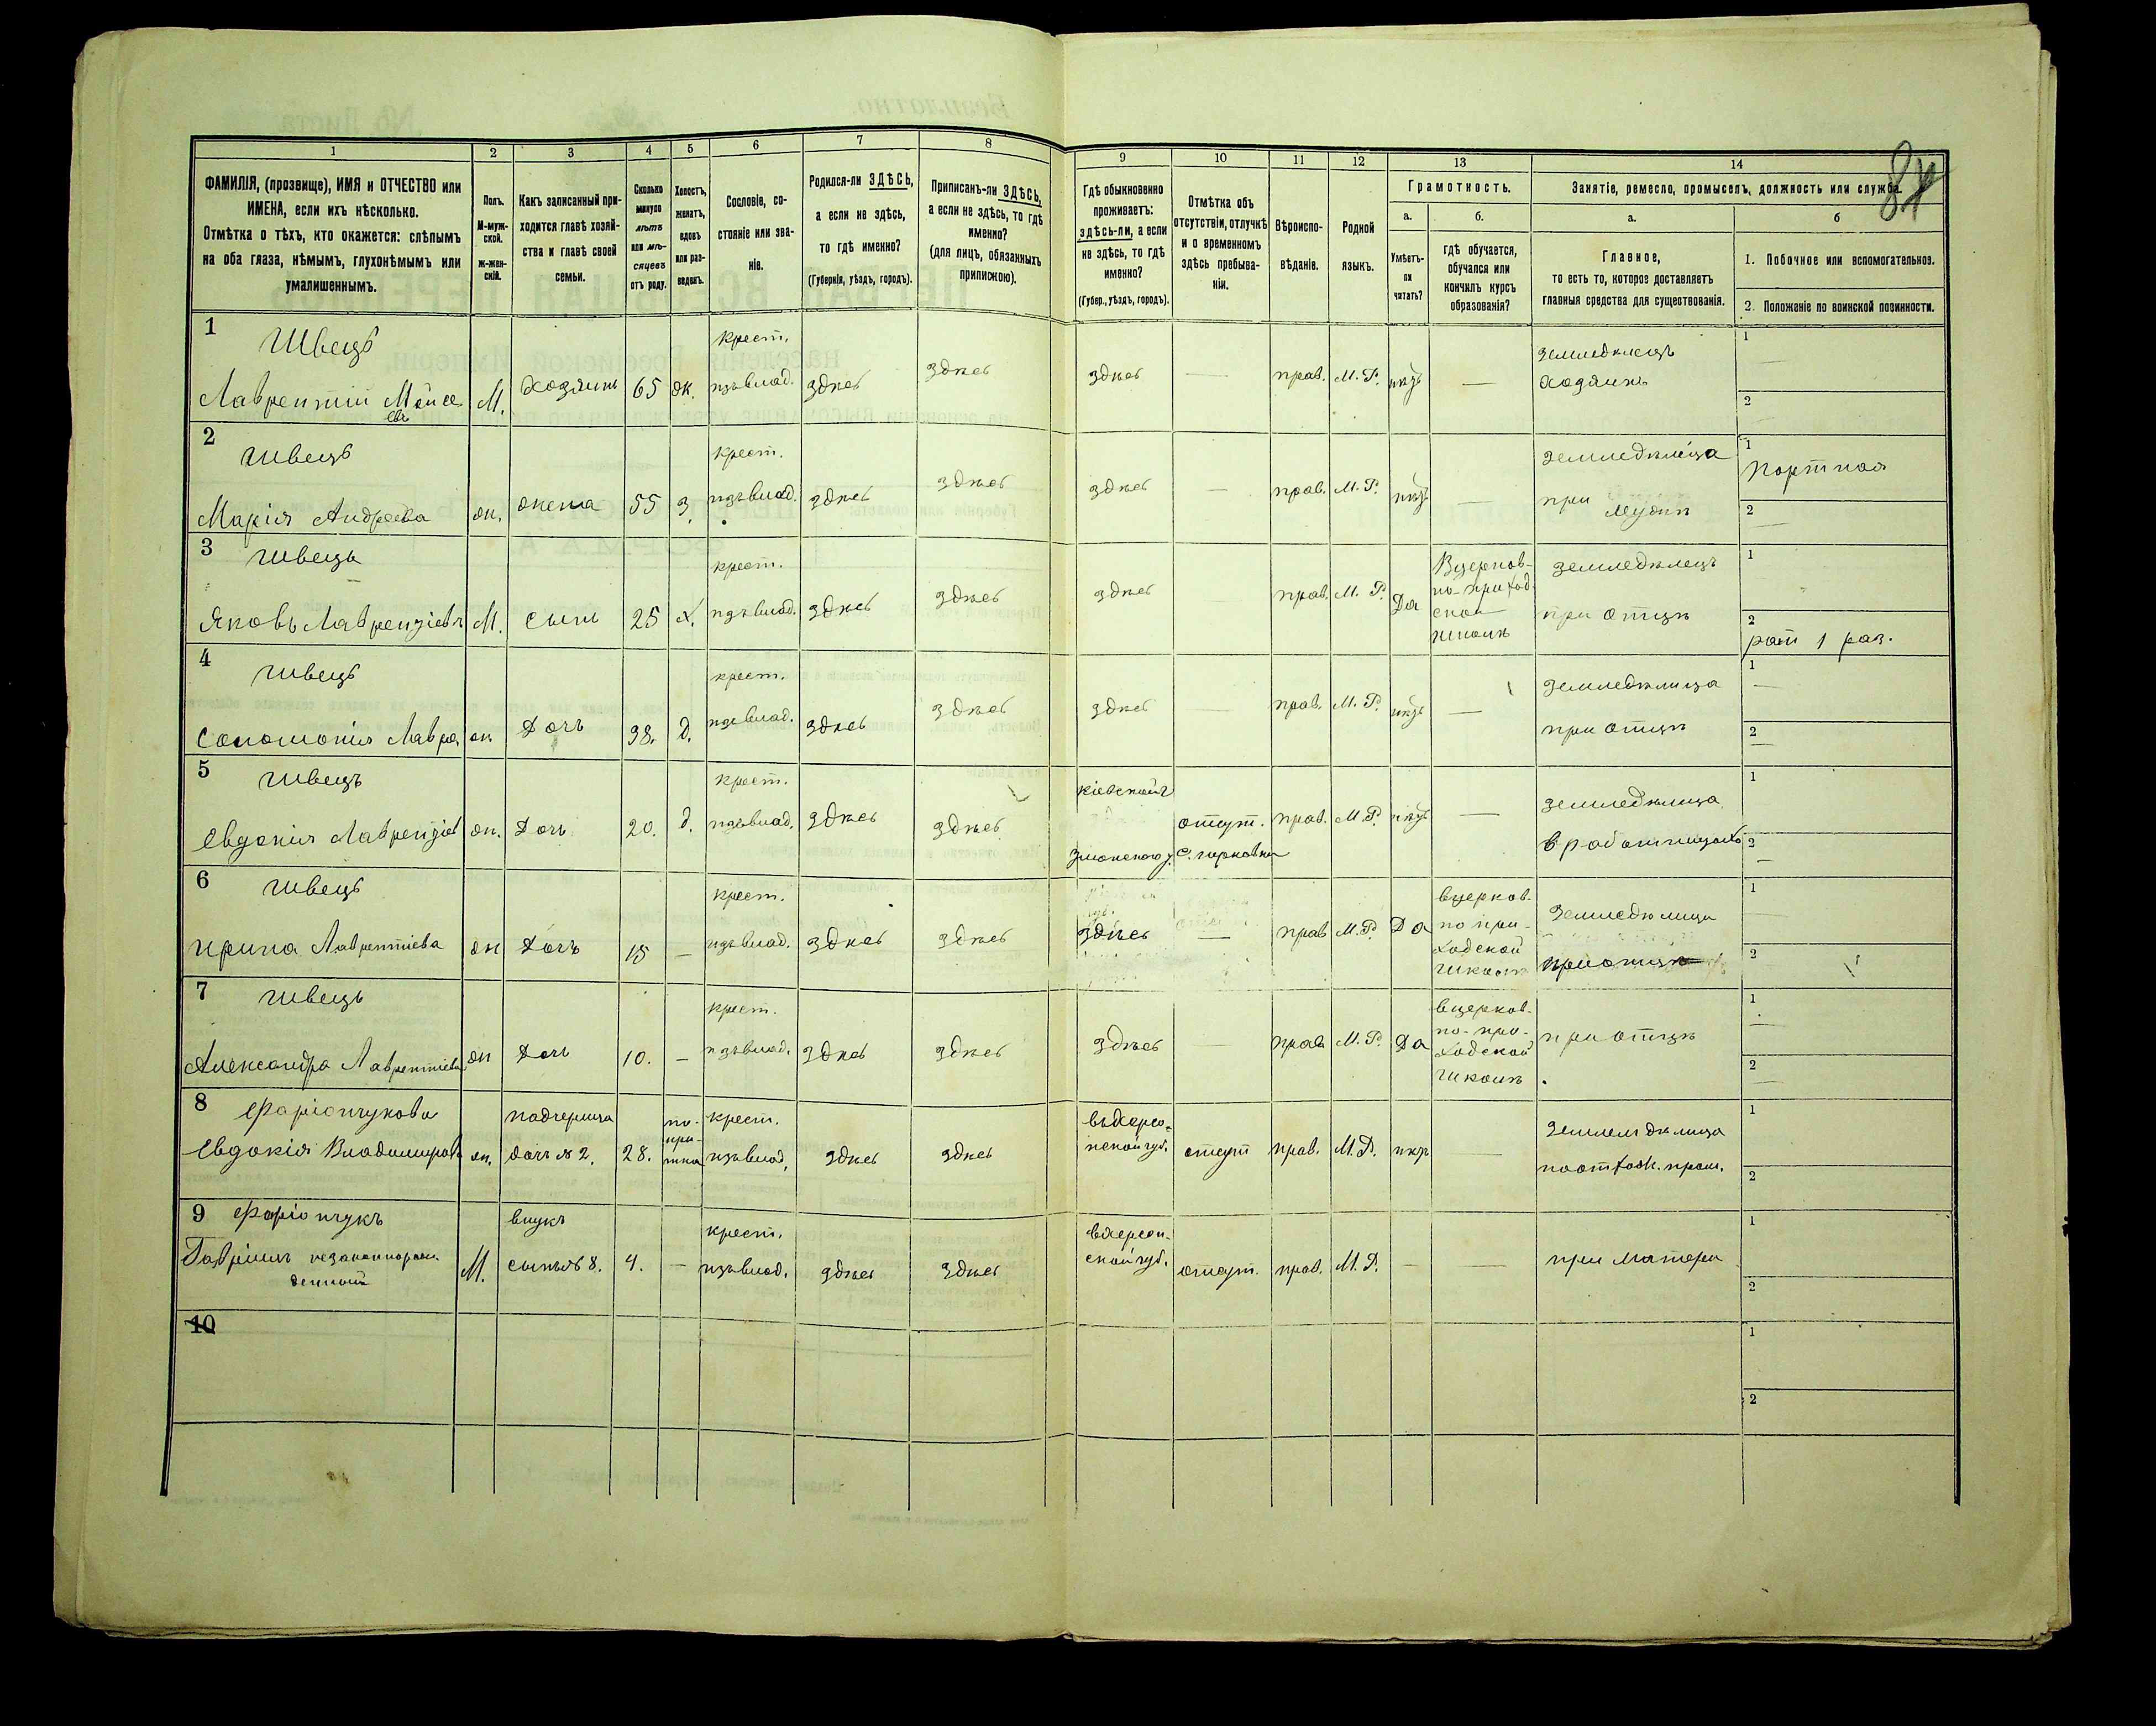 87
1
2
3
4
5
6
7
8
9
10
11
12
13
14
ФАМИЛІЯ, (прозвище), ИМЯ и ОТЧЕСТВО или
ИМЕНА, если ихъ нѣсколько.
Отмѣтка о тѣхъ, кто окажется: слѣпымъ
на оба глаза, нѣмымъ, глухонѣмымъ или
умалишеннымъ.
Полъ.
М-муж-
ской.
Ж-жен-
скій.
Какъ записанный при-
ходится главѣ хозяй-
ства и главѣ своей
семьи.
Сколько
минуло
лѣтъ
или мѣ-
сяцевъ
отъ роду.
Холостъ,
женатъ,
вдовъ
или раз-
веденъ.
Сословіе, со-
стояніе или зва-
ніе.
Родился-ли ЗДѢСЬ,
а если не здѣсь,
то гдѣ именно?
(Губернія, уѣздъ, городъ).
Приписанъ-ли ЗДѢСЬ,
а если не здѣсь, то гдѣ
именно?
(для лицъ, обязанныхъ
припискою).
Гдѣ обыкновенно
проживаетъ:
здѣсь-ли, а если
не здѣсь, то гдѣ
именно?
(Губер., уѣздъ, городъ).
Отмѣтка объ
отсутствіи, отлучкѣ
и о временномъ
здѣсь пребыва-
ніи.
Вѣроиспо-
вѣданіе.
Родной
языкъ.
Грамотность.
а.
Умѣетъ-
ли
читать?
б.
гдѣ обучается,
обучался или
кончилъ курсъ
образованія?
Занятіе, ремесло, промыселъ, должность или служба.
а.
Главное,
то есть то, которое доставляетъ
главныя средства для существованія.
б
1. Побочное или вспомогательное.
2. Положеніе по воинской повинности.
1
Швецъ
Лаврентій Мойсе
евъ
М.
Хозяинъ
65
ж.
крест.
изъ влад.
здѣсь
здѣсь
здѣсь
—
прав.
М. Р.
нѣтъ
—
земледѣлецъ
хозяинъ
1
—
2
—
2
Швецъ
Марія Андреева
ж.
жена
55
З.
крест.
изъ влад.
здѣсь
здѣсь
здѣсь
—
прав.
М. Р.
нѣтъ
—
земледѣлица
при мужѣ
1
Портная
2
—
3
Швецъ
Яковъ Лаврентіевъ
М.
сынъ
25
х.
крест.
изъ влад.
здѣсь
здѣсь
здѣсь
прав.
М. Р.
Да
Вцерков-
но-приход
ской
школѣ
земледѣлецъ
при отцѣ
1
2
рат 1 раз.
4
Швецъ
Соломонія Лавре
ж
Дочь
38.
д.
крест.
изъ влад.
здѣсь
здѣсь
здѣсь
прав.
М. Р.
нѣтъ
—
земледѣлица
при отцѣ
1
—
2
—
5
Швецъ
Евдокія Лаврентіев
ж.
Дочь
20.
д.
крест.
изъ влад.
здѣсь
здѣсь
Кіевской г
отсут.
прав.
М. Р.
нѣтъ
—
земледѣлица
1
2
—
6
Швецъ
Ирина Лаврентіева
ж
Дочь
15
—
крест.
изъ влад.
здѣсь
здѣсь
здѣсь
—
прав
М. Р.
Да
вцерков-
но при-
ходской
школѣ
земледѣлица
при отцѣ
1
—
2
7
Швецъ
Александра Лаврентіева
ж
Дочь
10.
—
крест.
изъ влад.
здѣсь
здѣсь
здѣсь
—
прав
М. Р.
Да
вцерков-
но-при-
ходской
школѣ
при отцѣ
1
—
2
—
8
Фаріончукова
Евдокія Владимирова
ж.
падчерица
дочь № 2.
28.
по-
кры-
тка
крест.
изъ влад.
здѣсь
здѣсь
въ Херсо-
нской губ.
отсут
прав.
М. Р.
нѣтъ
—
земледѣлица
по отхож. пром.
1
2
9
Фаріончукъ
Гавріилъ незаконнорож
денный
М.
внукъ
сынъ № 8.
4.
—
крест.
изъ влад.
здѣсь
здѣсь
вхерсон-
ской губ.
отсут.
прав.
М. Р.
—
—
при матери
1
2
10
1
2